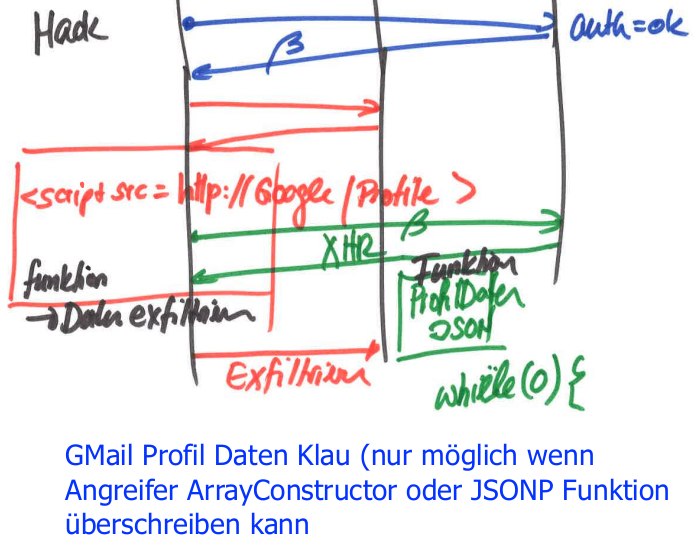 Hack
auth=ok
β
<script src = http://Google/Profile >
β
XHR
funktion
→ Daten exfiltrieren
Funktion
ProfilDaten
JSON
Exfiltrieren
while(0) {
GMail Profil Daten Klau (nur möglich wenn
Angreifer ArrayConstructor oder JSONP Funktion
überschreiben kann